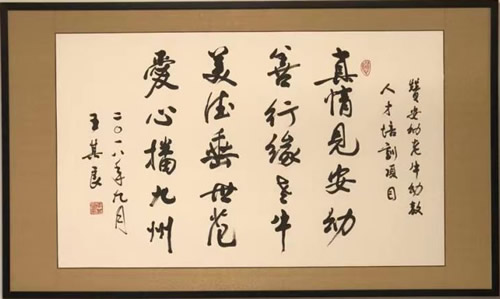 赞安幼老牛幼教
人才培训项目
真情見安幼
善行缘老牛
美德垂世范
愛心播九州
二〇一八年九月
王其良